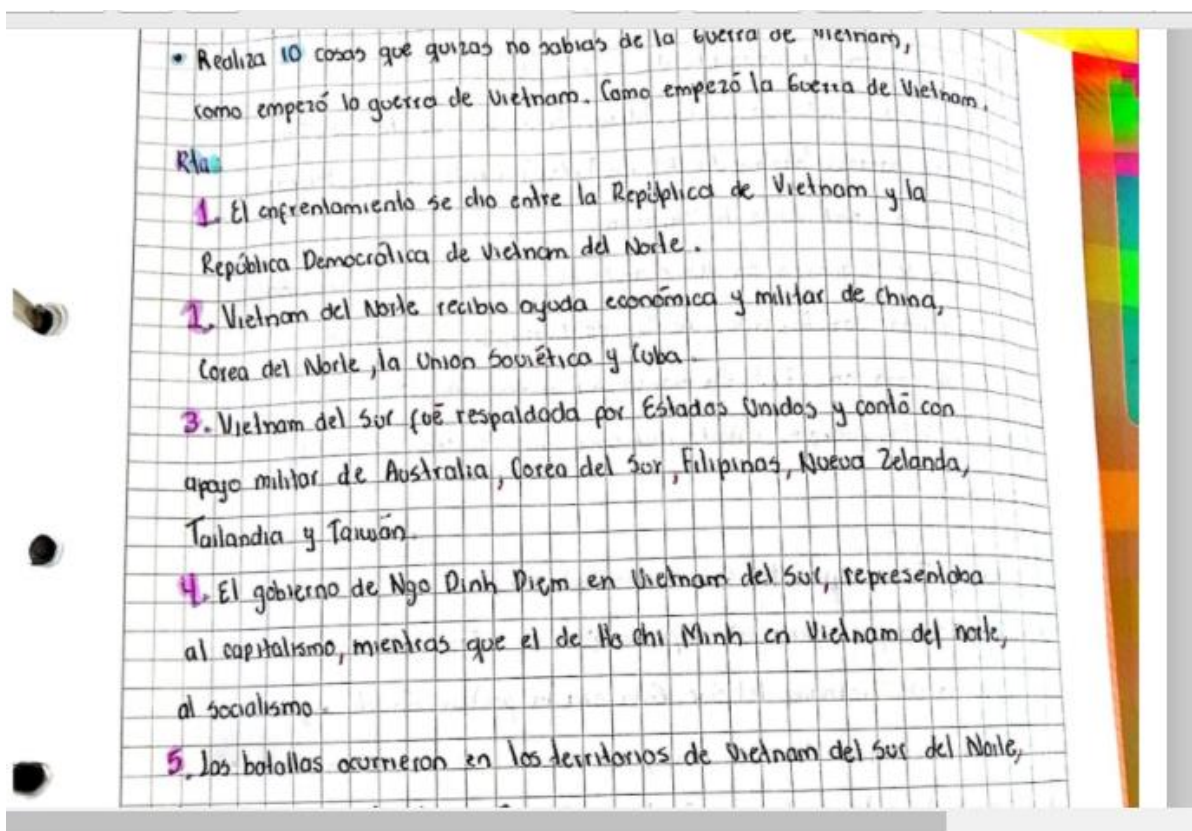 • Realiza 10 cosas que quizas no sabias de la Guerra de Vietnam,
como empezó la guerra de Vietnam. Como empezó la Guerra de Vietnam.
Rta:
1. El enfrentamiento se dio entre la Repúplica de Vietnam y la
República Democrática de Vietnam del Norte.
2. Vietnam del Norte recibio ayuda económica y militar de China,
Corea del Norte, la Union Soviética y Cuba.
3. Vietnam del Sur fué respaldada por Estados Unidos y contó con
apoyo militar de Australia, Corea del Sur, Filipinas, Nueva Zelanda,
Tailandia y Taiwán.
4. El gobierno de Ngo Dinh Diem en Vietnam del Sur, representaba
al capitalismo, mientras que el de Ho chi Minh en Vietnam del norte,
al socialismo.
5. Las batallas ocurrieron en los territorios de Vietnam del Sur del Norte,